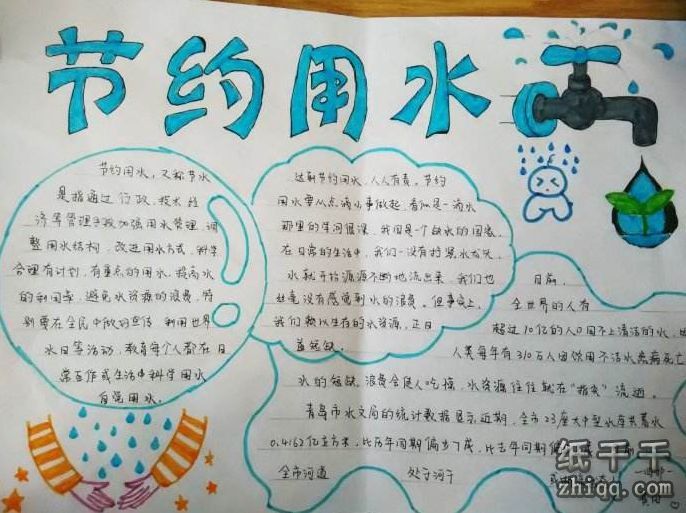 节约用水
节约用水，又称节水
是指通过行政、技术经
济等管理手段加强用水管理，调
整用水结构，改进用水方式，科学
合理有计划，有重点的用水，提高水
的利用率，避免水资源的浪费，特
别要在全民中做好宣传 利用世界
水日等活动，教育每个人都在日
常工作或生活中科学用水
自觉用水。
达到节约用水，人人有责。节约
用水要从点滴小事做起 看似是一滴水
那里的学问很深，我国是个缺水的国家
在日常的生活中，我们一没有拧紧水龙头
水就开始源源不断地流出来，我们也
丝毫没有感觉到水的浪费。但事实上，
我们赖以生存的水资源，正日
益短缺。
目前，
全世界的人有
超过10亿的人口用不上清洁的水，
人类每年有310万人因饮用不洁水患病死亡
水的短缺、浪费会使人吃惊，水资源往往就在"指尖"流逝。
青岛市水文局的统计数据显示，近期，全市23座大中型水库共蓄水
0.4162亿立方米，比历年同期偏少7成，比去年同期偏
全市河道 处于河干
纸千千
zhiqq.com